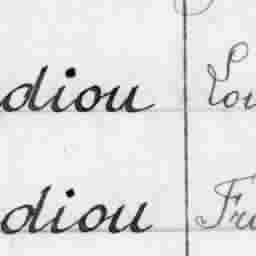 diou Lou
diou Fra